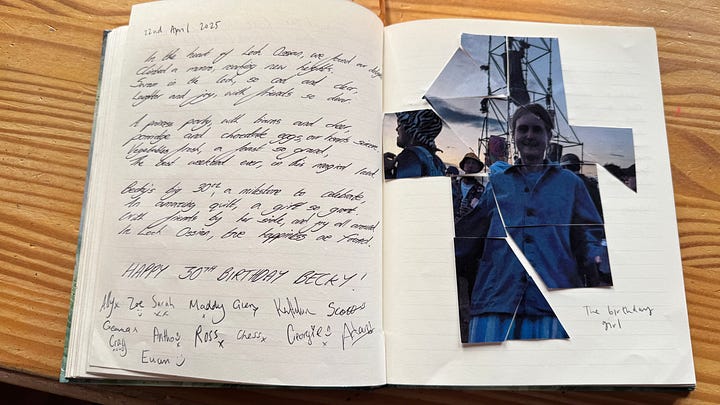 22nd April 2025
In the heart of Loch Ossian, we found our
Climbed a munro, reaching new heights.
Swam in the loch, so cool and clear,
Laughter and joy, with friends so dear.
A party, with burns and cheer,
Porridge and chocolate eggs,
Vegetables fresh, a feast so grand,
The best weekend ever, in this magical land.
Becky's big 30th a milestone to celebrate,
An amazing quilt, a gift so great.
With friends by her side, and joy all around
In Loch Ossian, true happiness we found.
HAPPY 30TH BIRTHDAY BECKY!
Alyx Zoe Sarah Maddy Scott
Craig Ross Chess Georgie
Euan
The birthday
girl